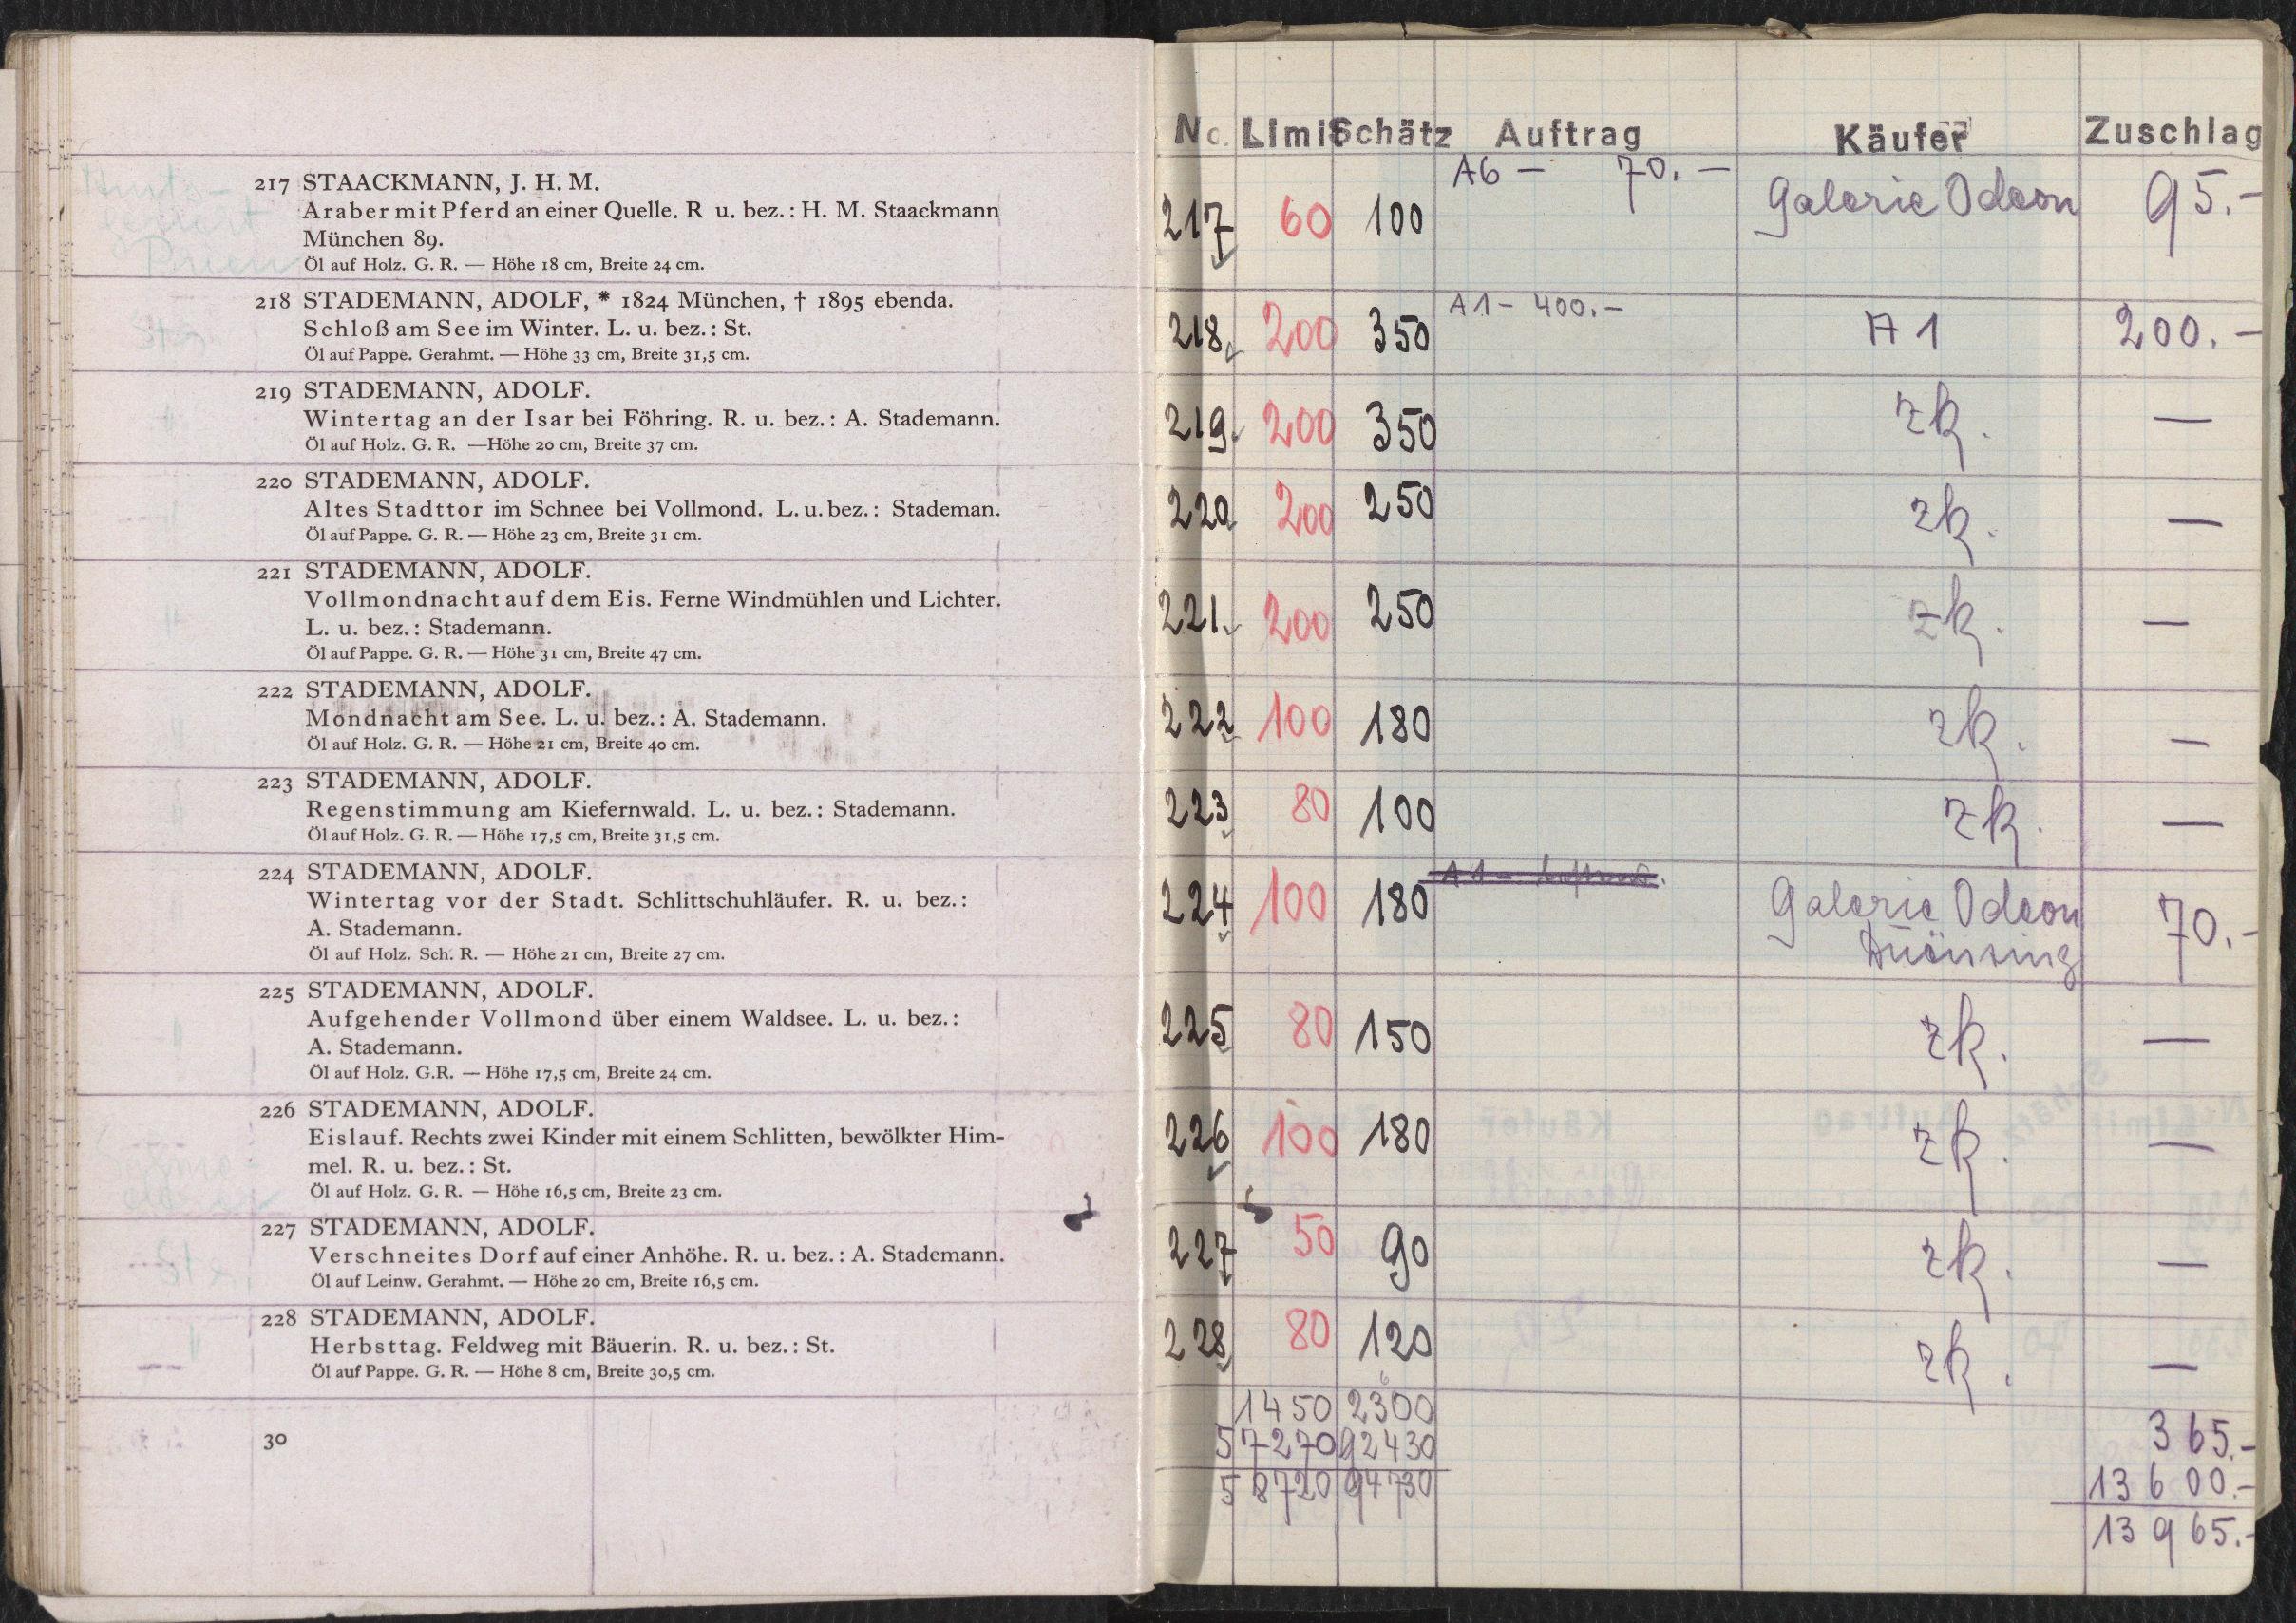 217 STAACKMANN, J. H. M.
Araber mit Pferd an einer Quelle. R u. bez.: H. M. Staackmann
München 89.
Öl auf Holz. G. R. — Höhe 18 cm, Breite 24 cm.
218 STADEMANN, ADOLF, * 1824 München, † 1895 ebenda.
Schloß am See im Winter. L. u. bez.: St.
Öl auf Pappe. Gerahmt. — Höhe 33 cm, Breite 31,5 cm.
219 STADEMANN, ADOLF.
Wintertag an der Isar bei Föhring. R. u. bez.: A. Stademann.
Öl auf Holz. G. R. —Höhe 20 cm, Breite 37 cm.
220 STADEMANN, ADOLF.
Altes Stadttor im Schnee bei Vollmond. L. u. bez.: Stademan.
Öl auf Pappe. G. R. — Höhe 23 cm, Breite 31 cm.
221 STADEMANN, ADOLF.
Vollmondnacht auf dem Eis. Ferne Windmühlen und Lichter.
L. u. bez.: Stademann.
Öl auf Pappe. G. R. — Höhe 31 cm, Breite 47 cm.
222 STADEMANN, ADOLF.
Mondnacht am See. L. u. bez.: A. Stademann.
Öl auf Holz. G. R. — Höhe 21 cm, Breite 40 cm.
223 STADEMANN, ADOLF.
Regenstimmung am Kiefernwald. L. u. bez.: Stademann.
Öl auf Holz. G. R. — Höhe 17,5 cm, Breite 31,5 cm.
224 STADEMANN, ADOLF.
Wintertag vor der Stadt. Schlittschuhläufer. R. u. bez.:
A. Stademann.
Öl auf Holz. Sch. R. — Höhe 21 cm, Breite 27 cm.
225 STADEMANN, ADOLF.
Aufgehender Vollmond über einem Waldsee. L. u. bez.:
A. Stademann.
Öl auf Holz. G.R. — Höhe 17,5 cm, Breite 24 cm.
226 STADEMANN, ADOLF.
Eislauf. Rechts zwei Kinder mit einem Schlitten, bewölkter Him-
mel. R. u. bez.: St.
Öl auf Holz. G. R. — Höhe 16,5 cm, Breite 23 cm.
227 STADEMANN, ADOLF.
Verschneites Dorf auf einer Anhöhe. R. u. bez.: A. Stademann.
Öl auf Leinw. Gerahmt. — Höhe 20 cm, Breite 16,5 cm.
228 STADEMANN, ADOLF.
Herbsttag. Feldweg mit Bäuerin. R. u. bez.: St.
Öl auf Pappe. G. R. — Höhe 8 cm, Breite 30,5 cm.
30
No. Limit Schätz Auftrag Käufer Zuschlag
A6 — 70.—
217 60 100 Galerie Odeon 95.-
A1 - 400.—
218 200 350 A 1 200.—
219 200 350 zk. —
220 200 250 zk. —
221 200 250 zk. —
222 100 180 zk. —
223 80 100 zk. —
A 1 —
224 100 180 Galerie Odeon 70.-
225 80 150 zk. —
226 100 180 zk. —
227 50 90 zk. —
228 80 120 zk. —
1450 2300
57270 92430 365.-
58720 94730 13600.-
13965.-